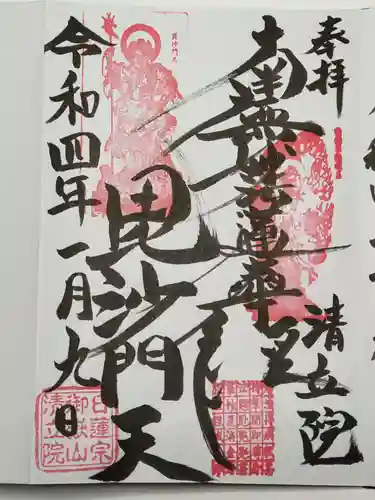 奉拝
清立院
南無妙法蓮華経
毘沙門天
令和四年一月九日
毘沙門天
日蓮宗
御嶽山
清立院